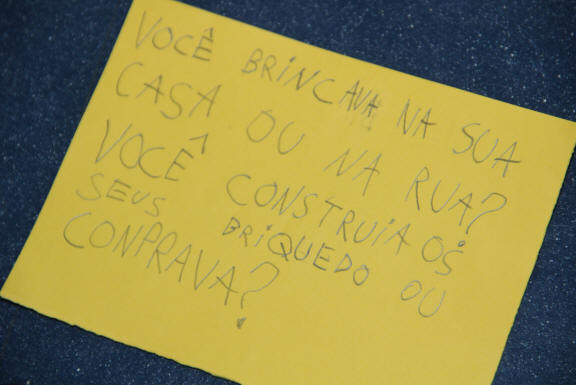 VOCÊ BRINCAVA NA SUA
CASA OU NA RUA?
VOCÊ CONSTRUIA OS
SEUS BRIQUEDO OU
CONPRAVA?